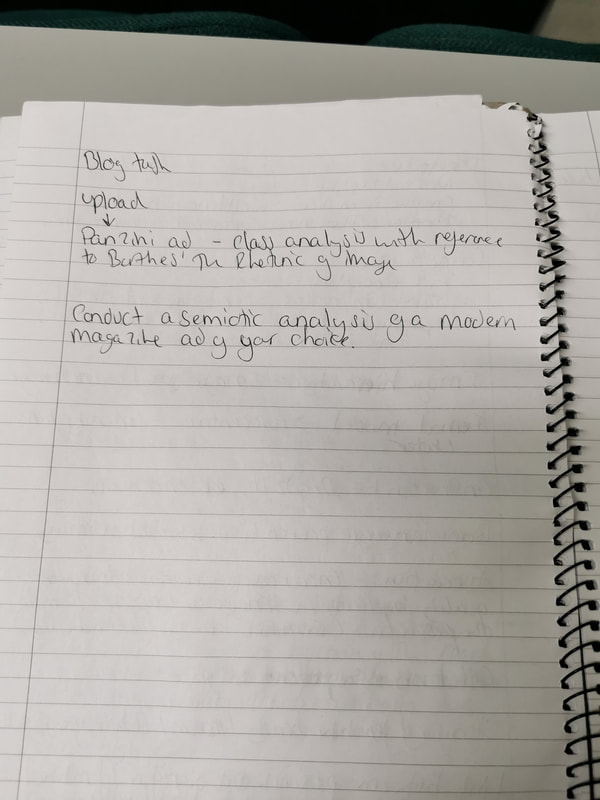 Blog task
upload
↓
Panzini ad - class analysis with reference
to Barthes' The Rhetoric of Image
Conduct a semiotic analysis of a modern
magazine ad of your choice.